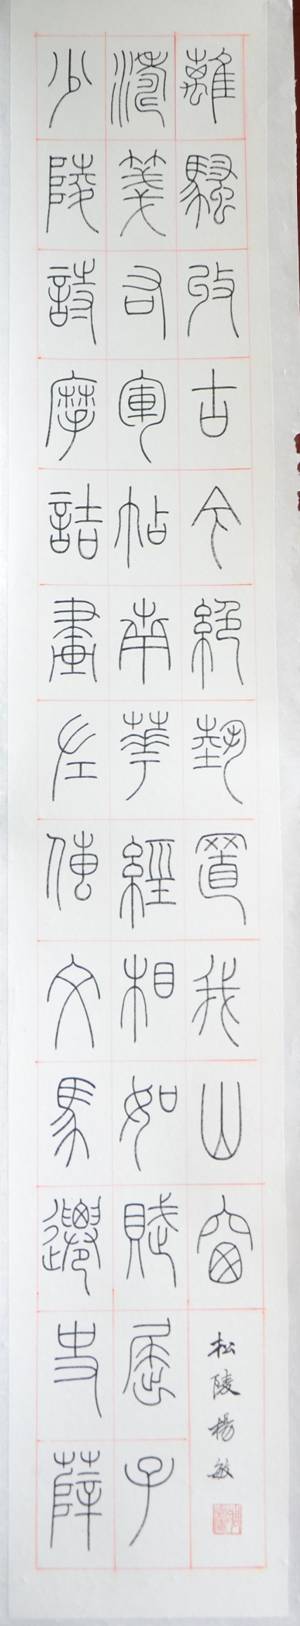 少陵詩摩詰畫左傳文馬遷史薛
濤箋右軍帖南華經相如賦屈子
離騷收古今絕藝置我山窗
松陵楊敏